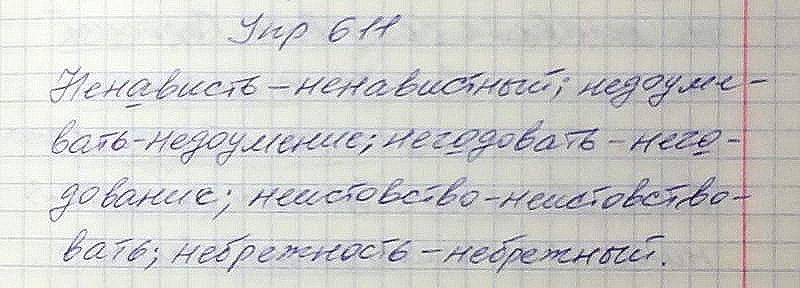 Упр 611
Ненависть – ненавистный; недоуме-
вать-недоумение; негодовать – него-
дование; неистовство-неистовство-
вать; небрежность – небрежный.